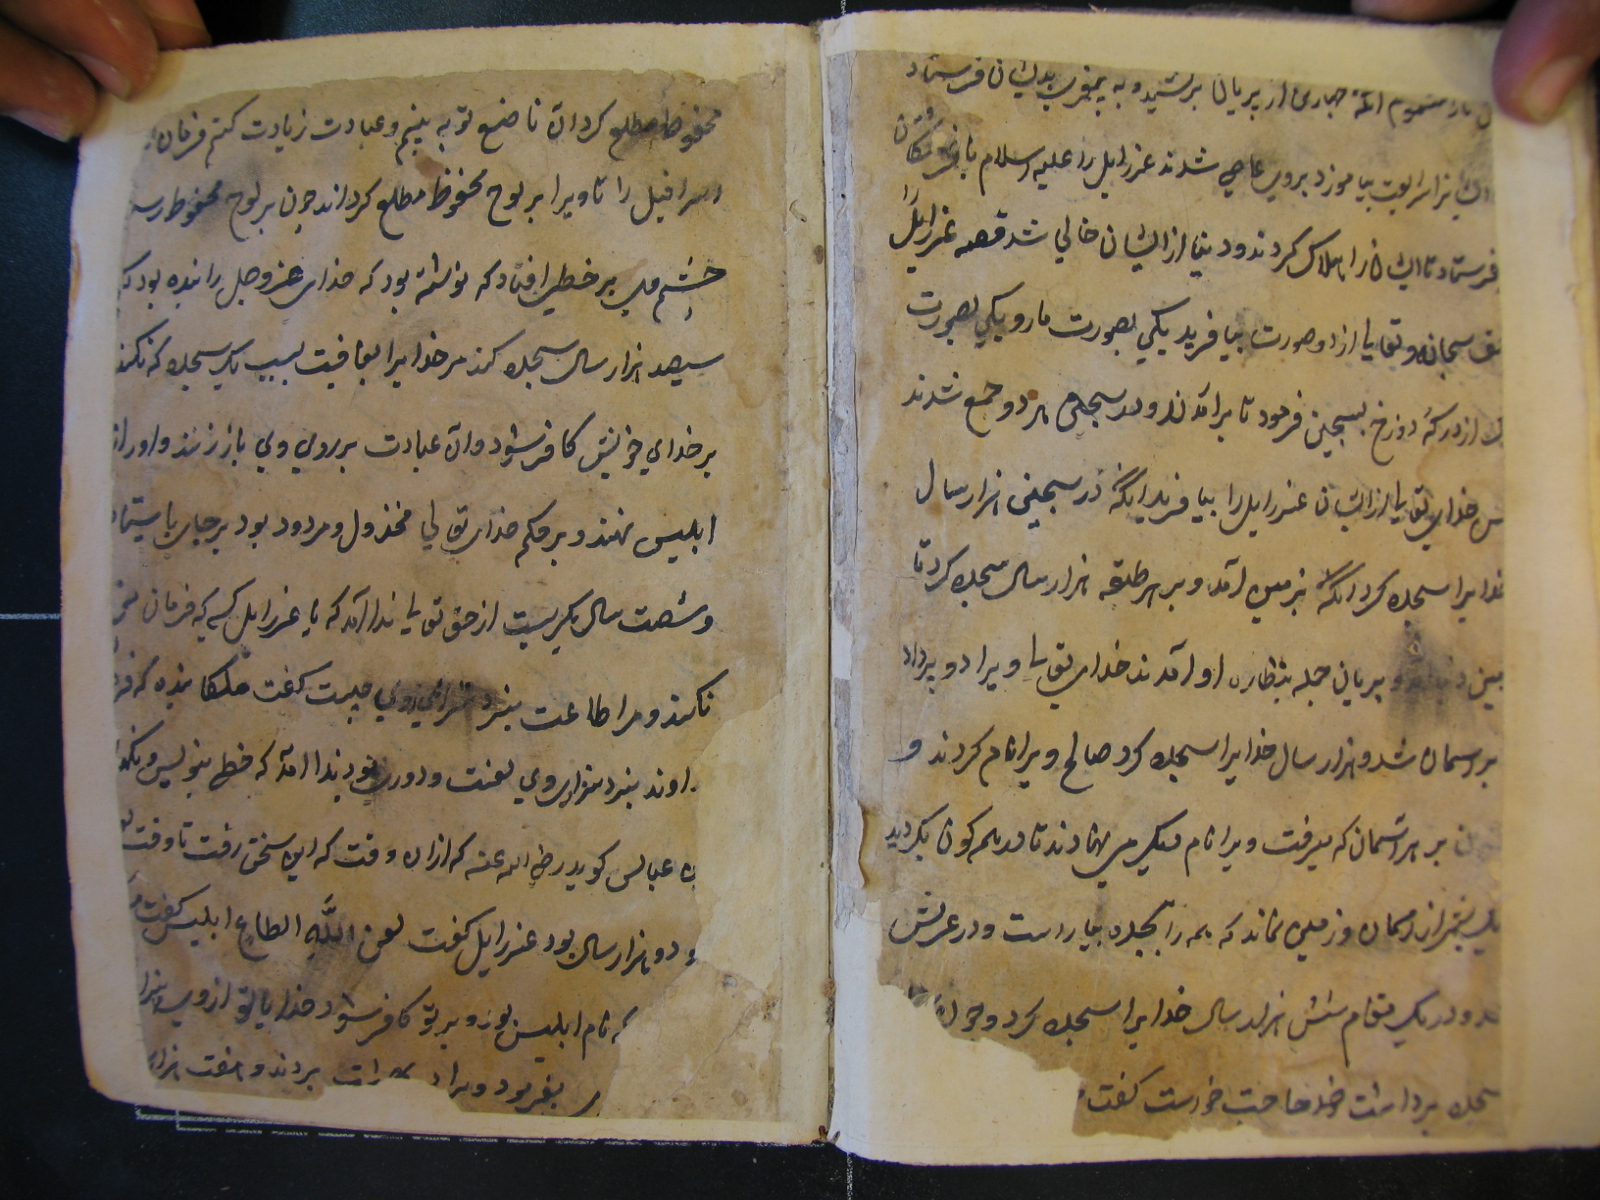 باز مسموم آنگه جباری از پریان برکشید و به پیغمبری بدیشان فرستاد
ایشانرا شریعت بیاموزد بروی عاصی شدند عزرایل را علیه السلام با فرشتگان
فرستاد تا ایشانرا هلاک کردند و دنیا از ایشان خالی شد قصه عزرایل
سبحانه و تعالی از دو صورت بیافرید یکی بصورت مار و یکی بصورت
از درکهٔ دوزخ بسجین فرمود تا برآمدند و در سجین هر دو جمع شدند
خدای تعالی از ایشان عزرایل را بیافرید آنگه در سجین هزار سال
خدایرا سجده کرد آنگه بزمین آمد و بر هر طبقه هزار سال سجده کرد تا
پریان جمله بنظاره او آمدند خدای تعالی ویرا دو پر داد
بر آسمان شد و هزار سال خدایرا سجده کرد صالح ویرا نام کردند و
بر هر آسمان که میرفت ویرا نام دیگر می نهادند تا در همه کون بگردید
از آسمان و زمین نماند که همه را بسجده بیاراست و در عرش
و در یک مقام شش هزار سال خدایرا سجده کرد و چون
سجده برداشت خدا حاجت خواست گفت
محفوظ مطلع گردان تا صنع تو به بینم و عبادت زیادت کنم فرمان
اسرافیل را تا ویرا بر لوح محفوظ مطلع گردانید چون بر لوح محفوظ
چشم وی بر خطی افتاد که نوشته بود که خدای عز و جل را بنده بود
سیصد هزار سال سجده کند مر خدایرا بعاقبت بسبب یک سجده که نکند
بر خدای خویش کافر شود و آن عبادت بر روی وی باز زنند و او را
ابلیس نهند و بر حکم خدای تعالی مخذول و مردود بود بر جای بایستاد
و شصت سال بگریست از حق تعالی ندا آمد که یا عزرایل کسی که فرمان
نکند و مرا طاعت نبرد سزای وی چیست گفت ملکا بنده که
خداوند نبرد سزای وی لعنت و دوری بود ندا آمد که خط بنویس و
عباس گوید رضی الله عنه که از آن وقت که این سخن رفت تا وقت
دو هزار سال بود عزرایل گفت لعن اللّٰه الطاع ابلیس گفت
که نام ابلیس بود و بر تو کافر شود خدایا تو از وی
بفرمود ویرا بردند و هفت هزار